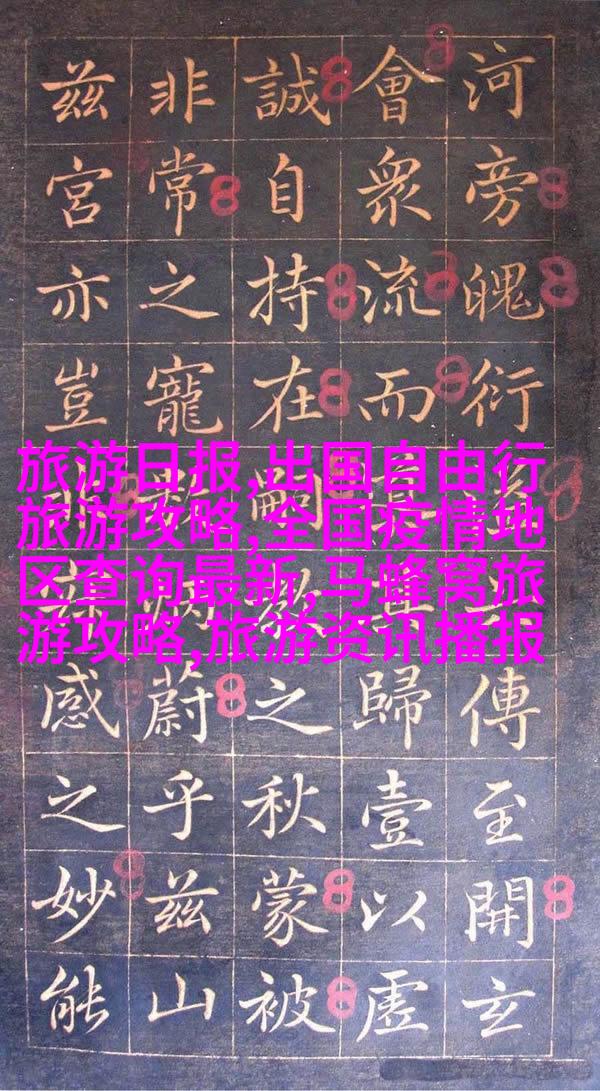 河旁魄衍傳至開玄
會衆流而歸壹以虛
誠自持在嗣之秋蒙被
非常之寵蔚乎兹山
兹宮亦豈感之妙能
旅游日报,出国自由行
旅游攻略,全国疫情地
区查询最新,马蜂窝旅
游攻略,旅游资讯播报